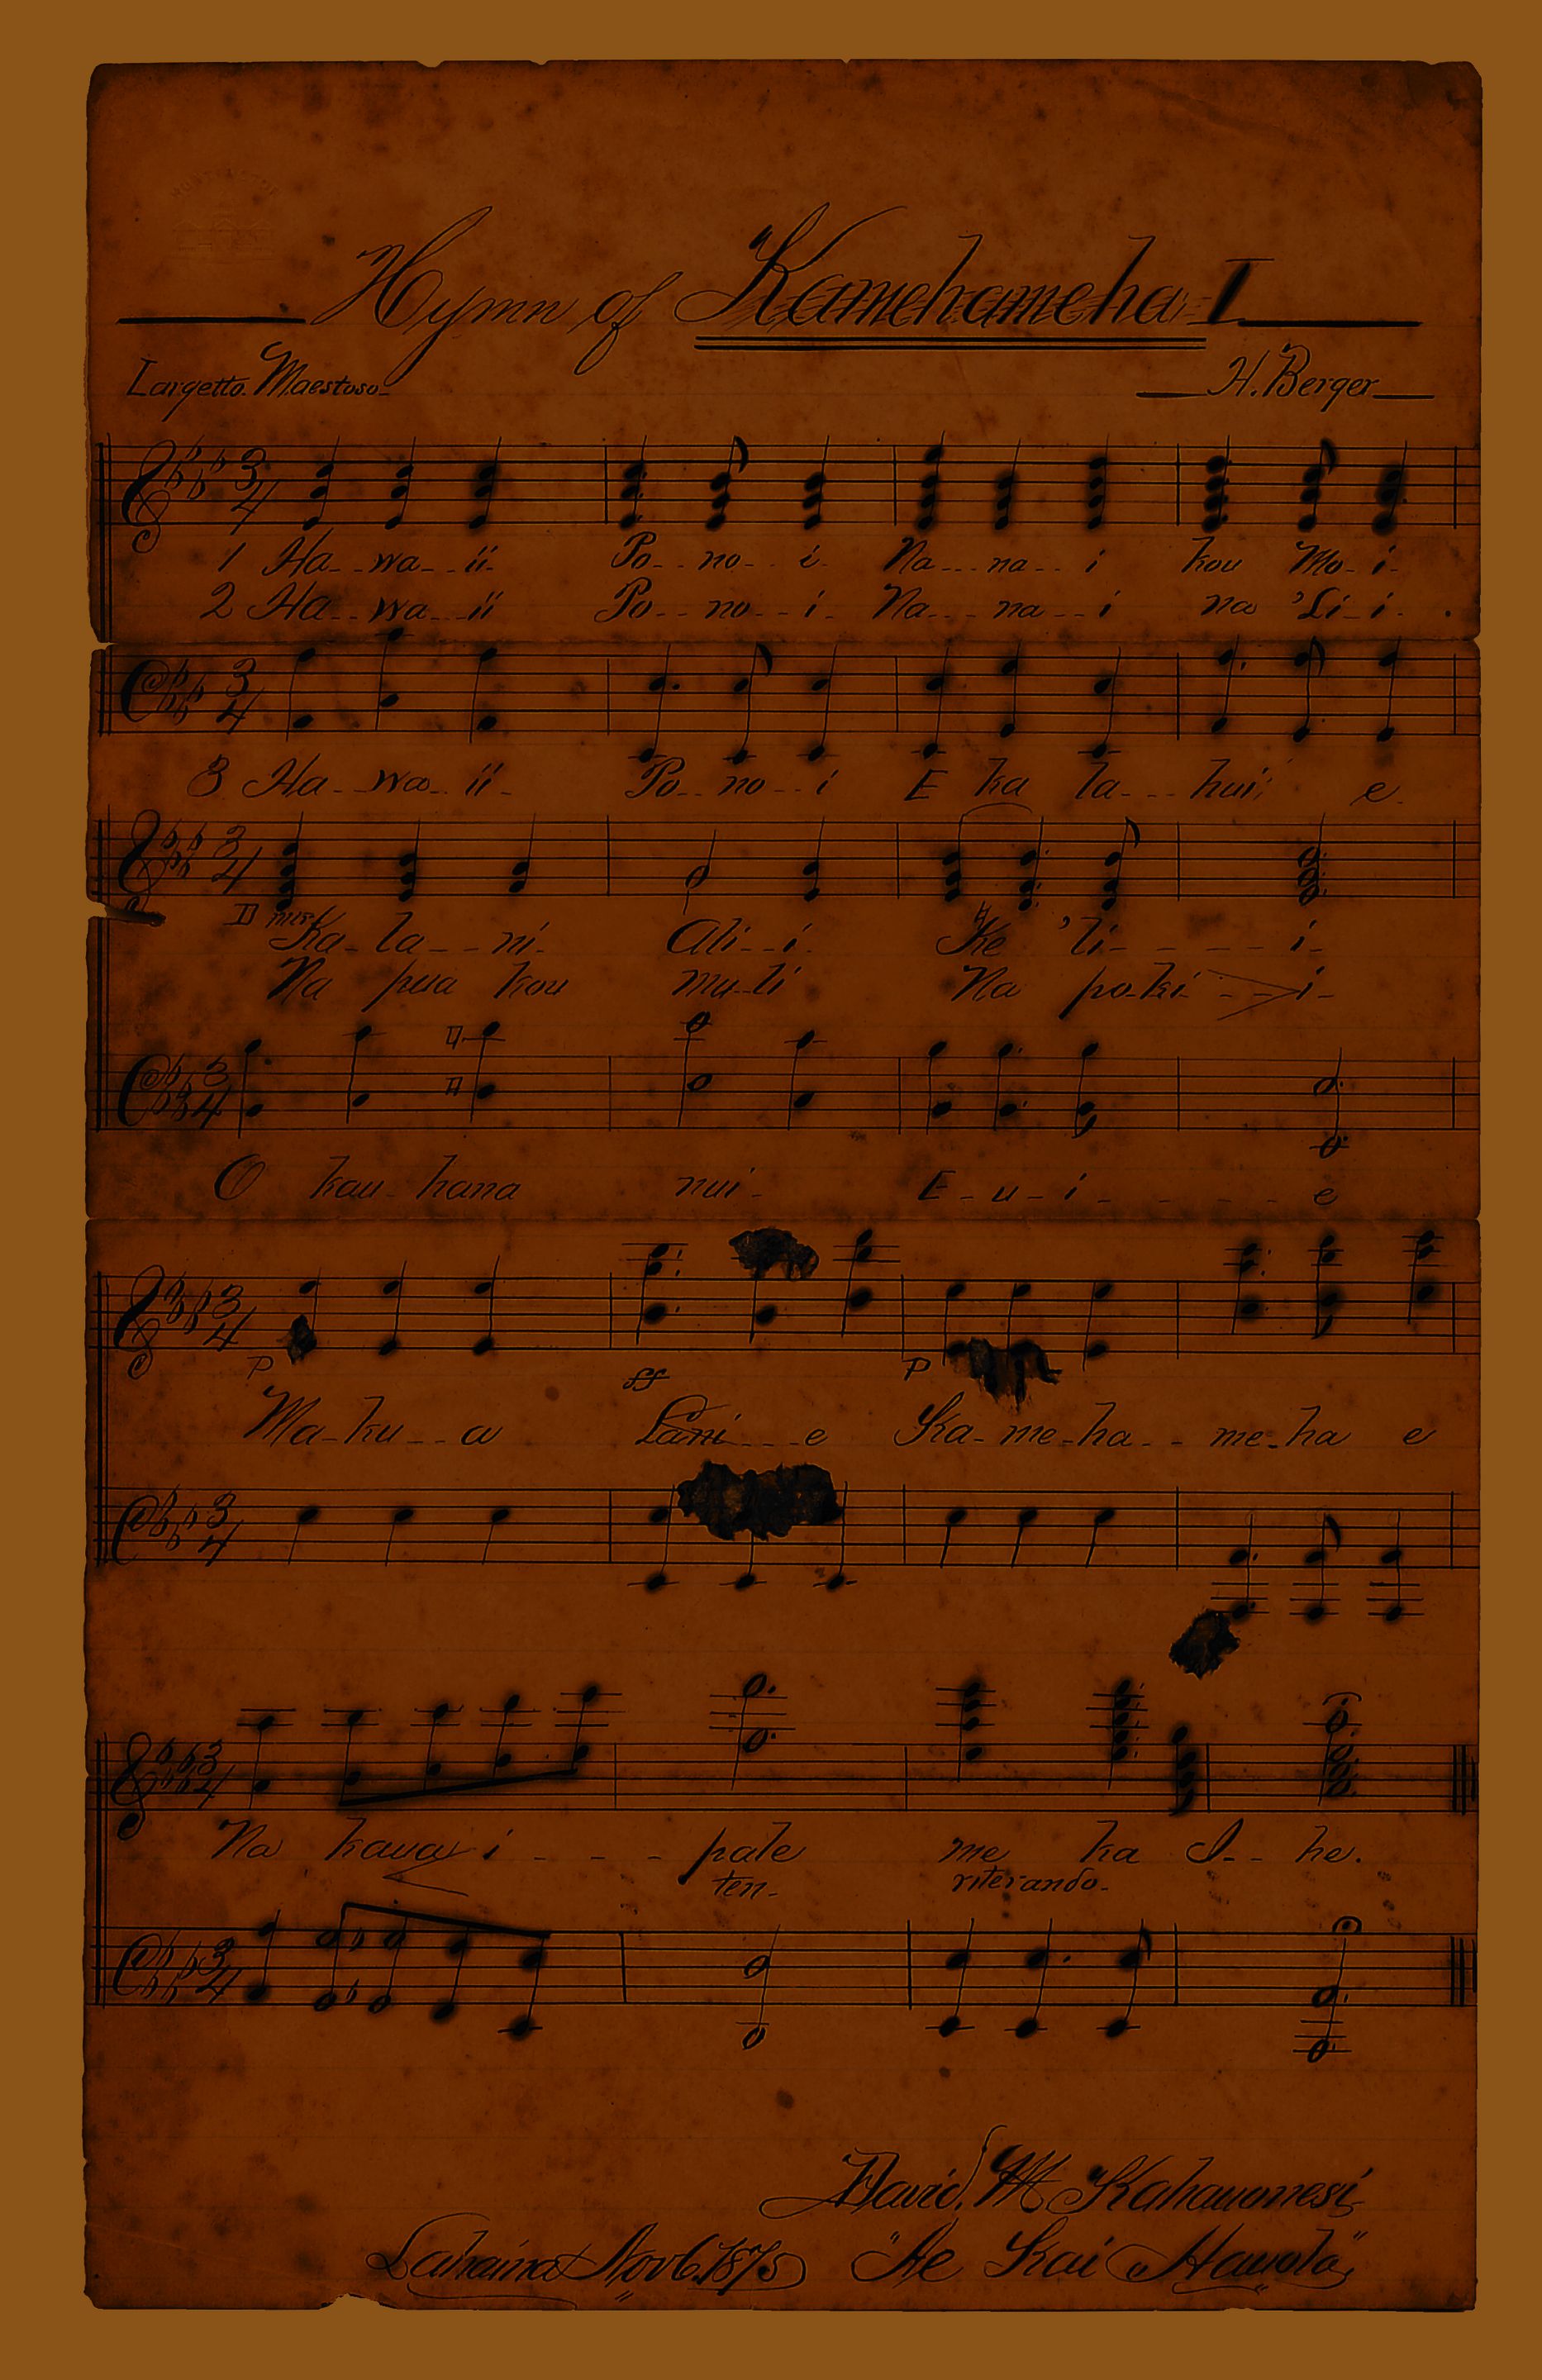 Hymn of Kamehameha I
Largetto. Maestoso
H. Berger
1 Ha--wa--ii- Po--no--i Na---na--i kou Mo-i-
2 Ha--wa--ii Po--no--i- Na---na--i na 'Li-i-
3 Ha--wa--ii- Po--no--i E ka la---hui; e
Ka-la--ni- Ali--i Ke 'li-----i-
Na pua kou mu-li Na po-ki---i-
O kau-hana nui- E-u-i------e
P ff P
Ma-ku--a Lani---e Ka-me-ha--me-ha e
Na kaua i---- pale me ka I-- he.
ten- riterando-
David. M Kahauonesi
Lahaina Nov 6. 1875 "Ae Kai Hawola"